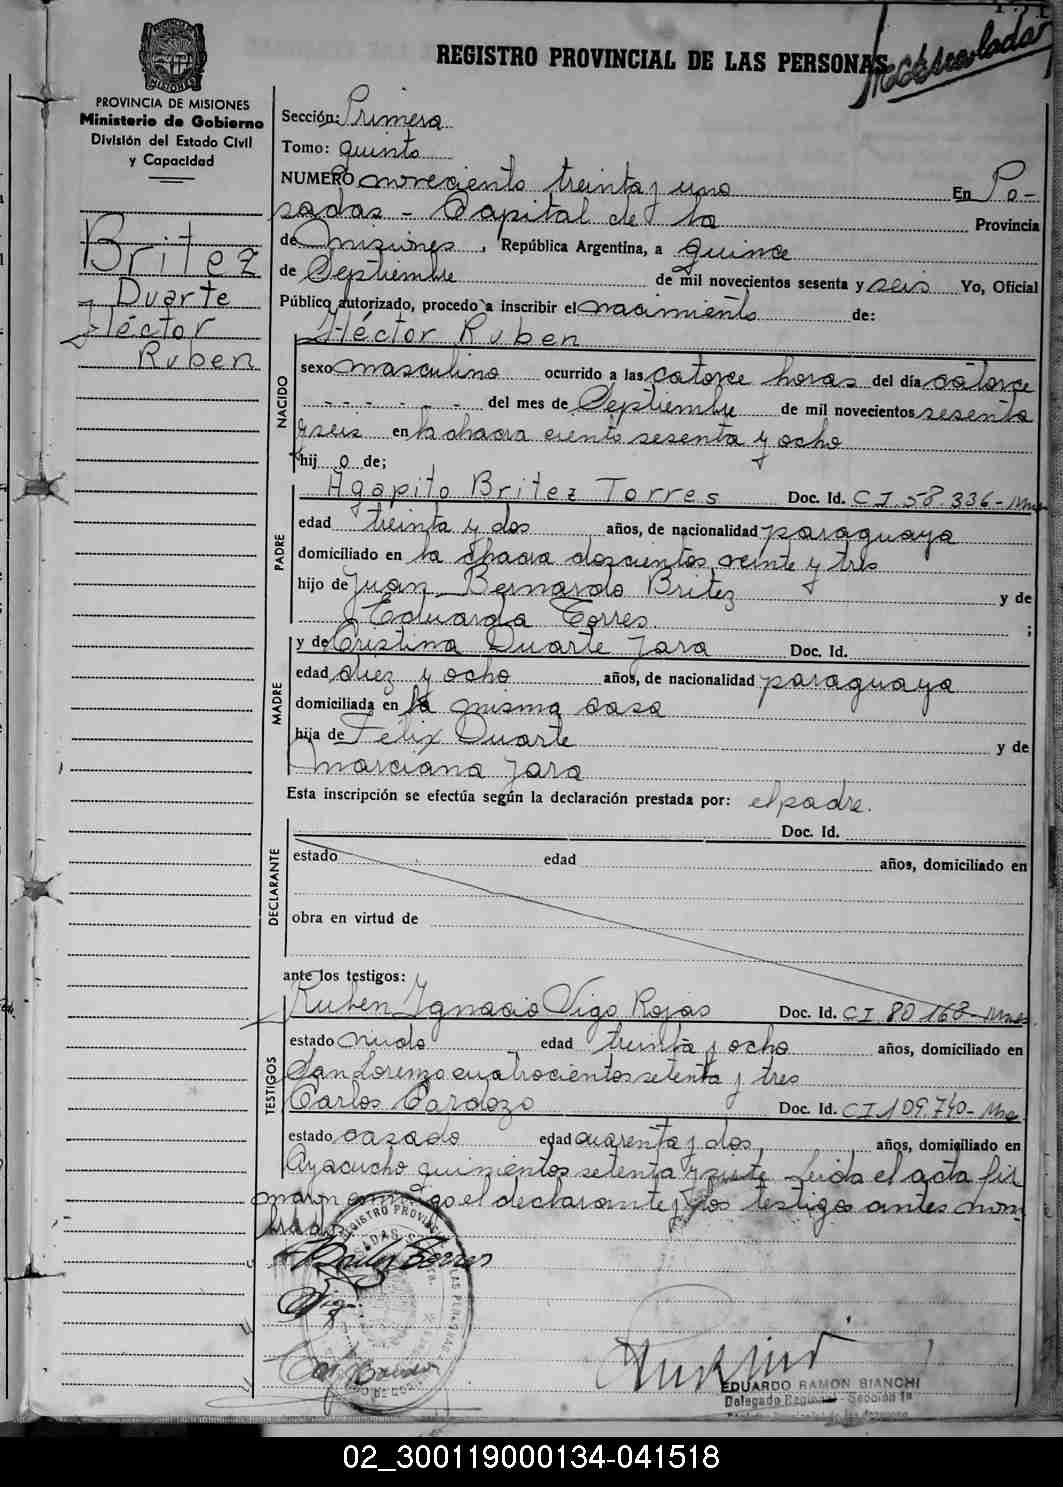 REGISTRO PROVINCIAL DE LAS PERSONAS
PROVINCIA DE MISIONES
Ministerio de Gobierno
División del Estado Civil
y Capacidad
Britez
Duarte
Héctor
Ruben
Sección: Primera
Tomo: quinto
NUMERO noveciento treinta y uno En Po-
sadas - Capital de la Provincia
de misiones, República Argentina, a quince
de Septiembre de mil novecientos sesenta y seis Yo, Oficial
Público autorizado, procedo a inscribir el nacimiento de:
Héctor Ruben
NACIDO
sexo masculino ocurrido a las catorce horas del día catorce
- - - - - - del mes de Septiembre de mil novecientos sesenta
y seis en la chacra ciento sesenta y ocho
hij o de;
PADRE
Agapito Britez Torres Doc. Id. C I. 58.336-
edad treinta y dos años, de nacionalidad paraguaya
domiciliado en la chacra doscientos veinte y tres
hijo de Juan Bernardo Britez y de
Eduarda Torres ;
MADRE
y de Cristina Duarte Jara Doc. Id.
edad diez y ocho años, de nacionalidad paraguaya
domiciliada en la misma casa
hija de Félix Duarte y de
marciana Jara
Esta inscripción se efectúa según la declaración prestada por: el padre.
DECLARANTE
Doc. Id.
estado edad años, domiciliado en
obra en virtud de
ante los testigos:
TESTIGOS
Ruben Ignacio Vigo Rojas Doc. Id. C I. 80 168-
estado viudo edad treinta y ocho años, domiciliado en
San Lorenzo cuatrocientos setenta y tres
Carlos Cardozo Doc. Id. C I 109.740-
estado casado edad cuarenta y dos años, domiciliado en
Ayacucho quinientos setenta y siete Leida el acta fir
maron conmigo el declarante y los testigos antes nom
brados
EDUARDO RAMON BIANCHI
Delegado Regional - Sección 1ª
02_300119000134-041518